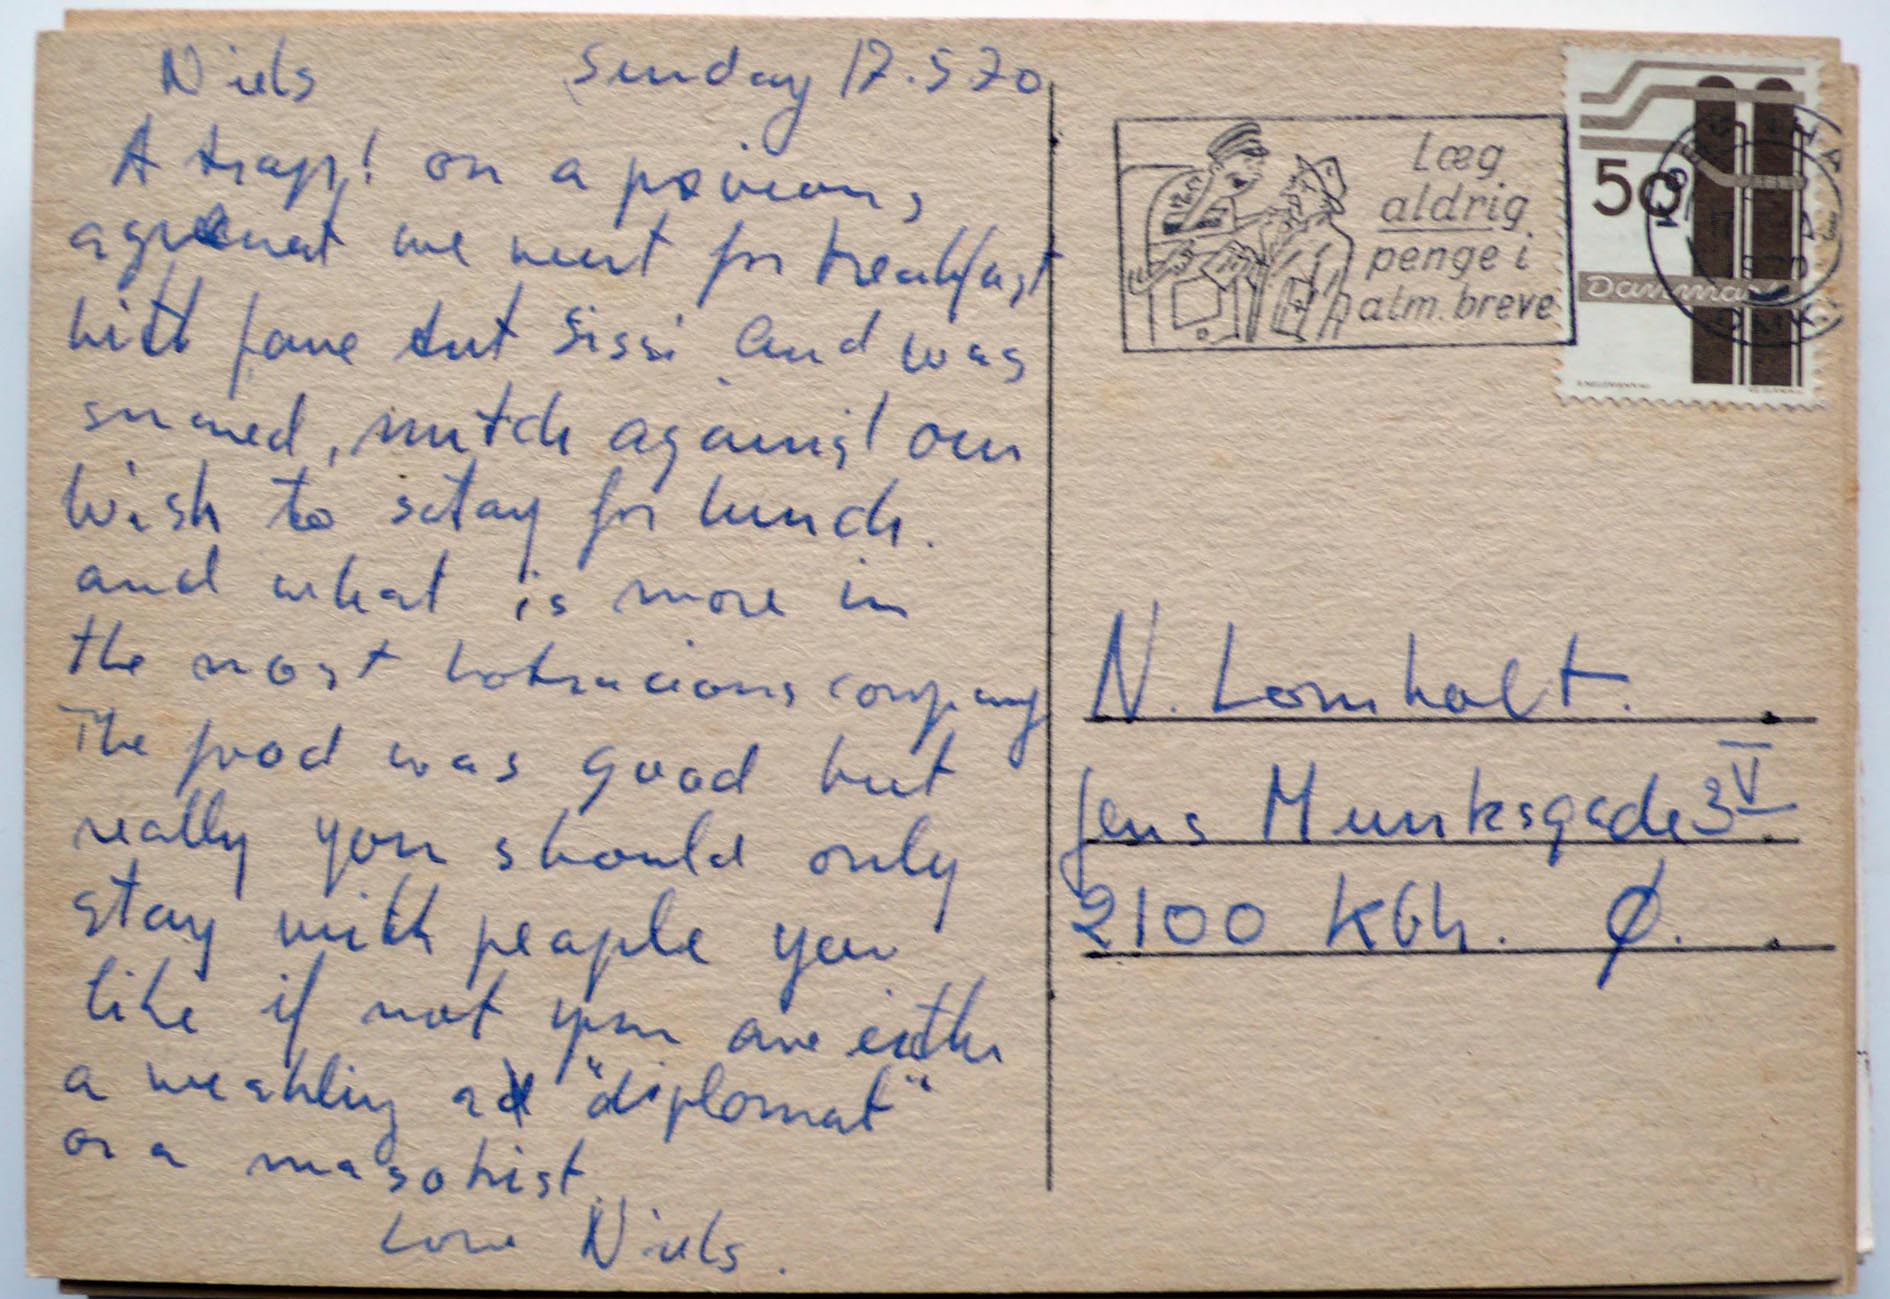 Niels Sunday 17.5.70
A trap! on a
agreement we went for breakfast
with Jane Sissi and was
mutch against our
wish to satay for lunch.
and what is more in
the most company
The food was good but
really you should only
stay with people you
like if not you are either
a "diplomat"
or a masohist.
Love Niels.
Læg
aldrig
penge i
alm. breve
50
Danmark
N. Lomholt.
Jens Munksgade 3 V
2100 Kbh. Ø.